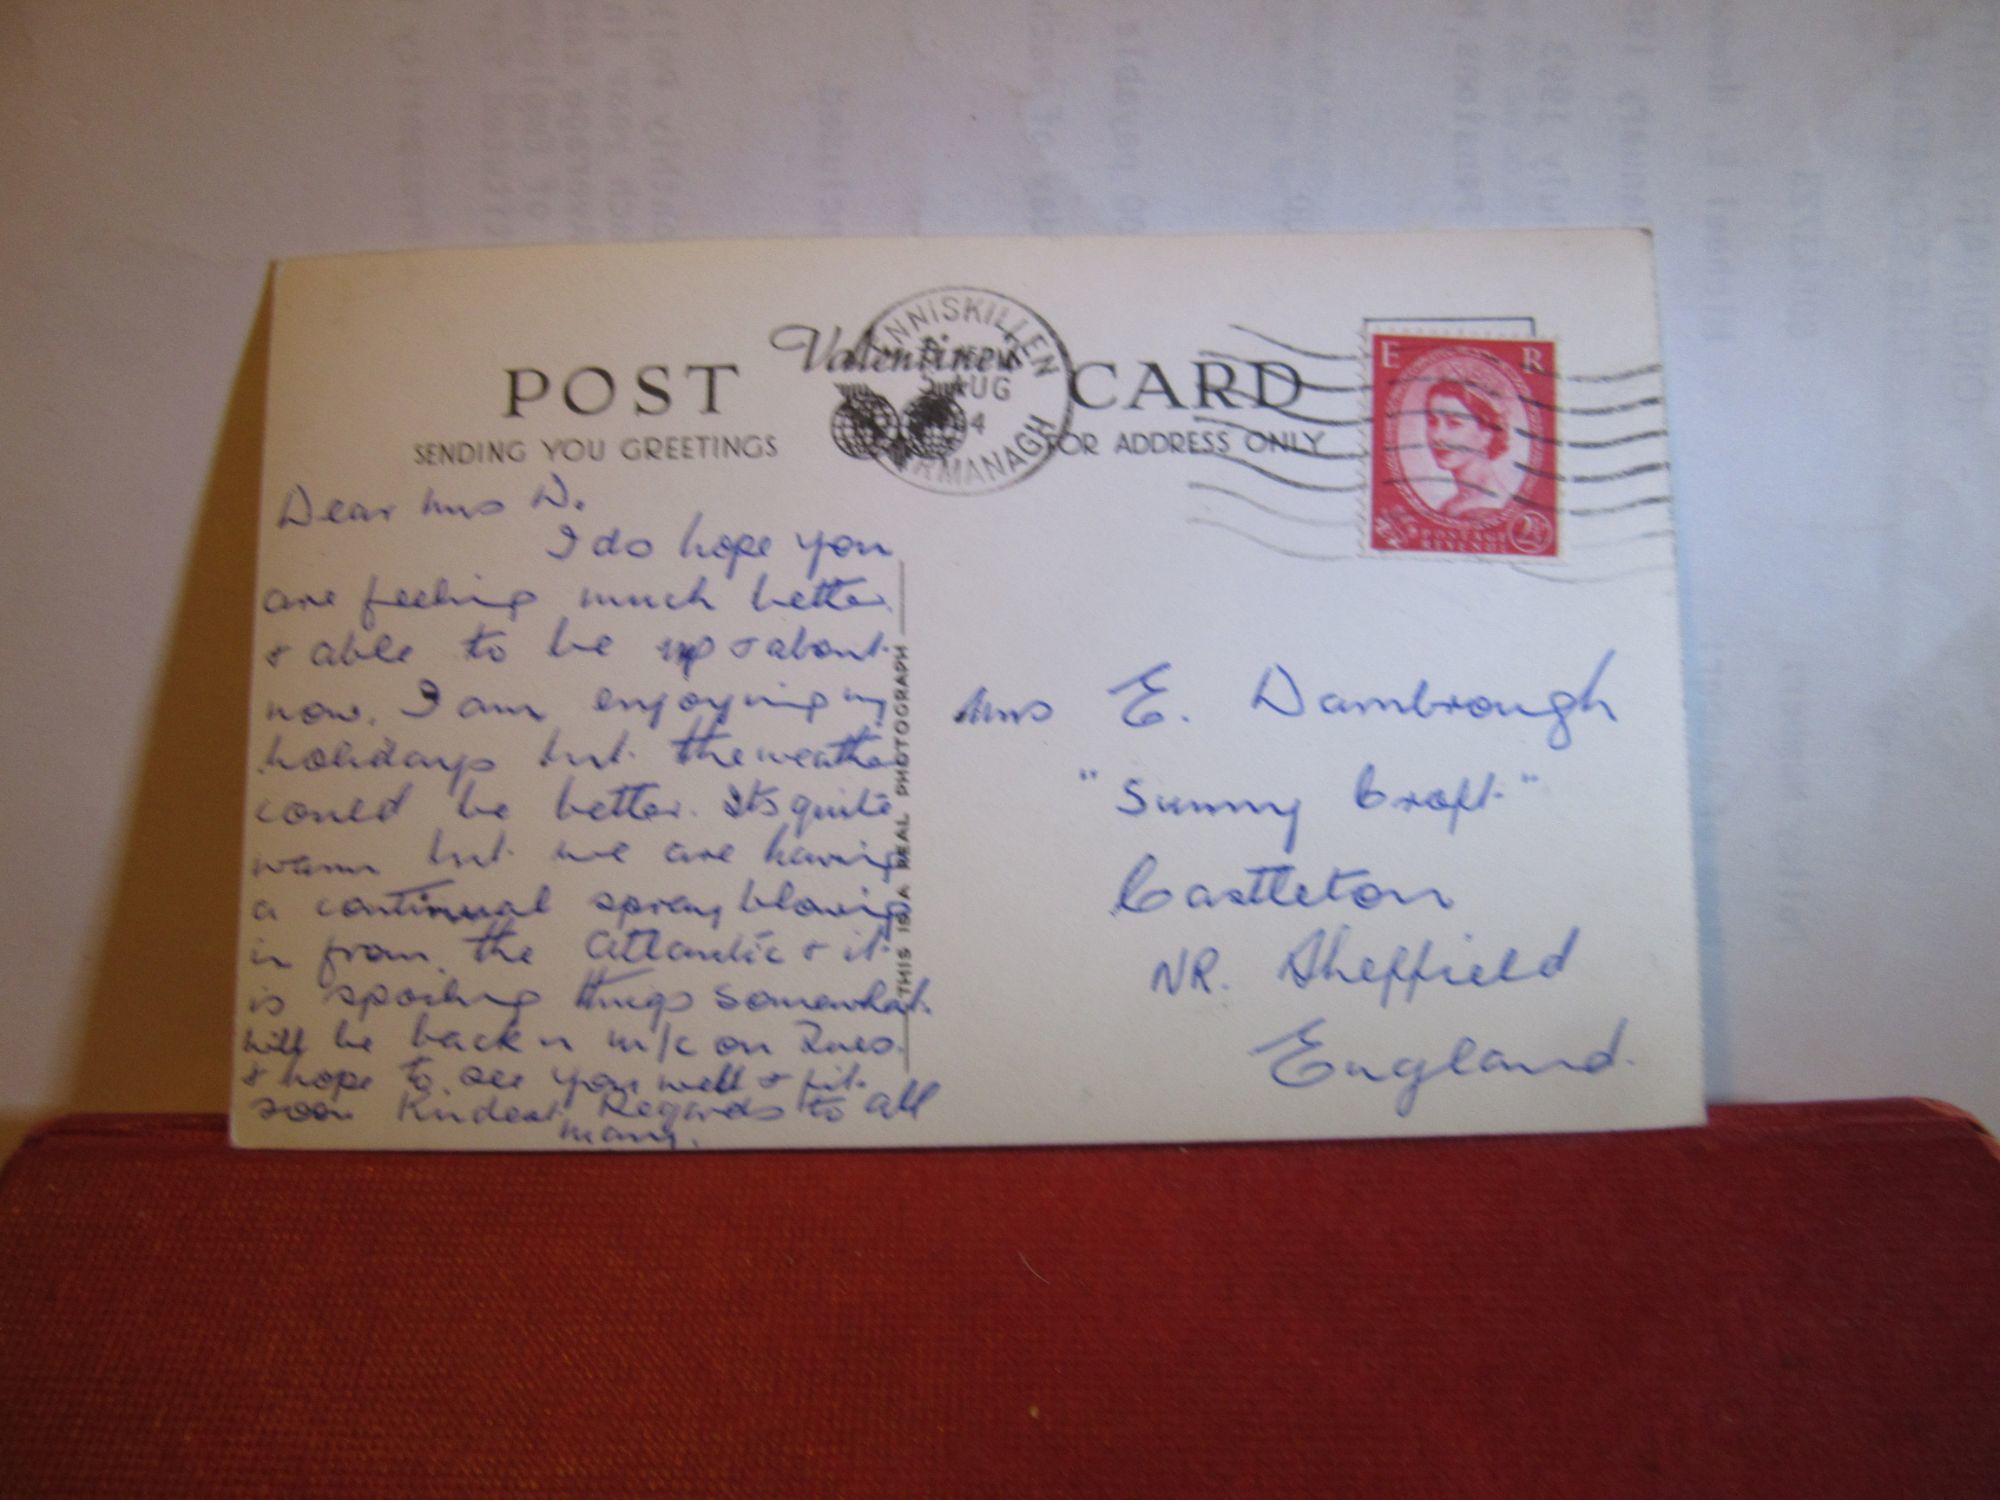 POST CARD
Valentine's
SENDING YOU GREETINGS
FOR ADDRESS ONLY
ENNISKILLEN
AUG
FERMANAGH
E R
POSTAGE
REVENUE
2½
Dear Mrs D.
I do hope you
are feeling much better
& able to be up & about
now. I am enjoying my
holidays but the weather
could be better. Its quite
warm but we are having
a continual spray blowing
in from the Atlantic & it
is spoiling things somewhat.
Will be back in M/C on Tues.
& hope to see you well & fit
soon Kindest Regards to all
Mary.
THIS IS A REAL PHOTOGRAPH
Mrs E. Dambrough
"Sunny Croft"
Castleton
NR. Sheffield
England.